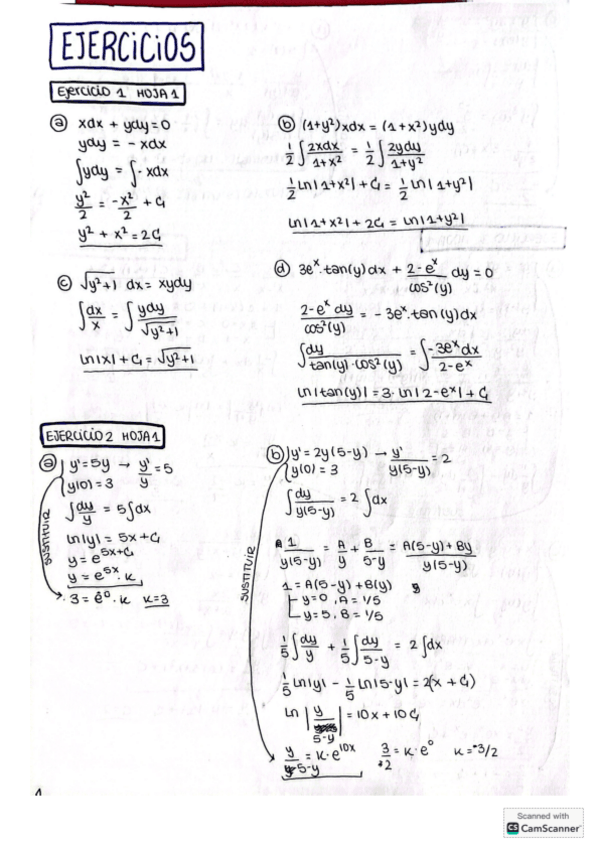 EJERCICIOS
Ejercicio 1 HOJA 1
a) xdx + ydy = 0
ydy = - xdx
∫ydy = ∫- xdx
y²/2 = -x²/2 + C₁
y² + x² = 2C₁
b) (1+y²)xdx = (1+x²)ydy
1/2 ∫ 2xdx/1+x² = 1/2 ∫ 2ydy/1+y²
1/2 Ln|1+x²| + C₁ = 1/2 Ln|1+y²|
Ln|1+x²| + 2C₁ = Ln|1+y²|
c) √y²+1 dx = xydy
∫dx/x = ∫ ydy/√y²+1
Ln|x| + C₁ = √y²+1
d) 3eˣ·tan(y)dx + 2-eˣ/cos²(y) dy = 0
2-eˣ dy/cos²(y) = - 3eˣ·tan(y)dx
∫dy/tan(y)·cos²(y) = ∫-3eˣdx/2-eˣ
Ln|tan(y)| = 3·Ln|2-eˣ| + C₁
EJERCICIO 2 HOJA 1
a) y' = 5y → y'/y = 5
y(0) = 3
∫dy/y = 5∫dx
Ln|y| = 5x + C₁
y = e⁵ˣ⁺ᶜ¹
y = e⁵ˣ·K
SUSTITUIR
3 = e⁰·K K=3
b) y' = 2y(5-y) → y'/y(5-y) = 2
y(0) = 3
∫dy/y(5-y) = 2∫dx
1/y(5-y) = A/y + B/5-y = A(5-y)+By/y(5-y)
1 = A(5-y) + B(y)
y=0, A = 1/5
y=5, B = 1/5
1/5∫dy/y + 1/5∫dy/5-y = 2∫dx
1/5 Ln|y| - 1/5 Ln|5-y| = 2(x + C₁)
Ln |y/5-y| = 10x + 10C₁
SUSTITUIR
y/5-y = K·e¹⁰ˣ 3/2 = K·e⁰ K = 3/2
Scanned with
CS CamScanner